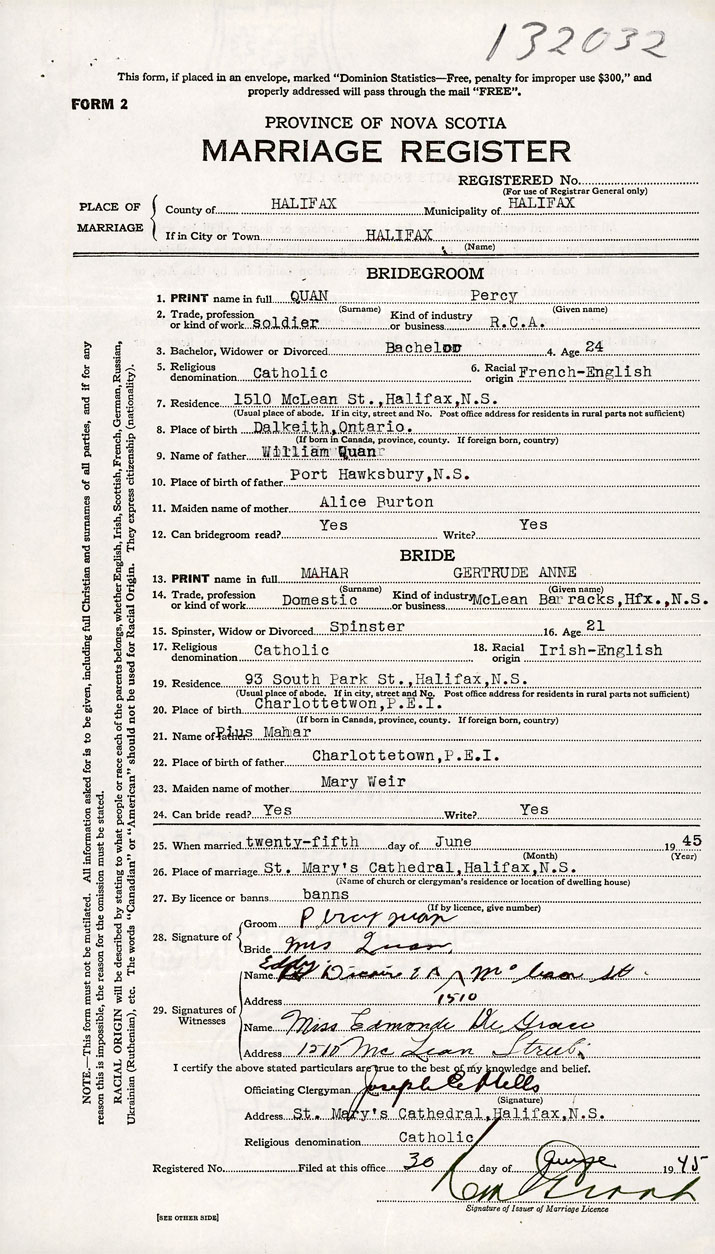 132032
This form, if placed in an envelope, marked “Dominion Statistics—Free, penalty for improper use $300,” and
properly addressed will pass through the mail “FREE”.
FORM 2
PROVINCE OF NOVA SCOTIA
MARRIAGE REGISTER
REGISTERED No.
(For use of Registrar General only)
PLACE OF MARRIAGE
County of HALIFAX Municipality of HALIFAX
If in City or Town HALIFAX
(Name)
BRIDEGROOM
1. PRINT name in full QUAN Percy
(Surname) (Given name)
2. Trade, profession or kind of work soldier Kind of industry or business R.C.A.
3. Bachelor, Widower or Divorced Bachelor 4. Age 24
5. Religious denomination Catholic 6. Racial origin French-English
7. Residence 1510 McLean St.,Halifax,N.S.
(Usual place of abode. If in city, street and No. Post office address for residents in rural parts not sufficient)
8. Place of birth Dalkeith,Ontario.
(If born in Canada, province, county. If foreign born, country)
9. Name of father William Quan
10. Place of birth of father Port Hawksbury,N.S.
11. Maiden name of mother Alice Burton
12. Can bridegroom read? Yes Write? Yes
BRIDE
13. PRINT name in full MAHAR GERTRUDE ANNE
(Surname) (Given name)
14. Trade, profession or kind of work Domestic Kind of industry or business McLean Barracks,Hfx.,N.S.
15. Spinster, Widow or Divorced Spinster 16. Age 21
17. Religious denomination Catholic 18. Racial origin Irish-English
19. Residence 93 South Park St.,Halifax,N.S.
(Usual place of abode. If in city, street and No. Post office address for residents in rural parts not sufficient)
20. Place of birth Charlottetwon,P.E.I.
(If born in Canada, province, county. If foreign born, country)
21. Name of father Pius Mahar
22. Place of birth of father Charlottetown,P.E.I.
23. Maiden name of mother Mary Weir
24. Can bride read? Yes Write? Yes
25. When married twenty-fifth day of June 19 45
(Month) (Year)
26. Place of marriage St. Mary's Cathedral,Halifax,N.S.
(Name of church or clergyman's residence or location of dwelling house)
27. By licence or banns banns
(If by licence, give number)
28. Signature of
Groom Percy Quan
Bride Mrs Quan
29. Signatures of Witnesses
Name Eddy
Address 1510 McLean St
Name Miss Edmonde De Grace
Address 1510 McLean Street
I certify the above stated particulars are true to the best of my knowledge and belief.
Officiating Clergyman Joseph E. Mills
(Signature)
Address St. Mary's Cathedral,Halifax,N.S.
Religious denomination Catholic
Registered No. Filed at this office 30 day of June 19 45
Signature of Issuer of Marriage Licence
[SEE OTHER SIDE]
NOTE.—This form must not be mutilated. All information asked for is to be given, including full Christian and surnames of all parties, and if for any
reason this is impossible, the reason for the omission must be stated.
RACIAL ORIGIN will be described by stating to what people or race each of the parents belongs, whether English, Irish, Scottish, French, German, Russian,
Ukrainian (Ruthenian), etc. The words “Canadian” or “American” should not be used for Racial Origin. They express citizenship (nationality).